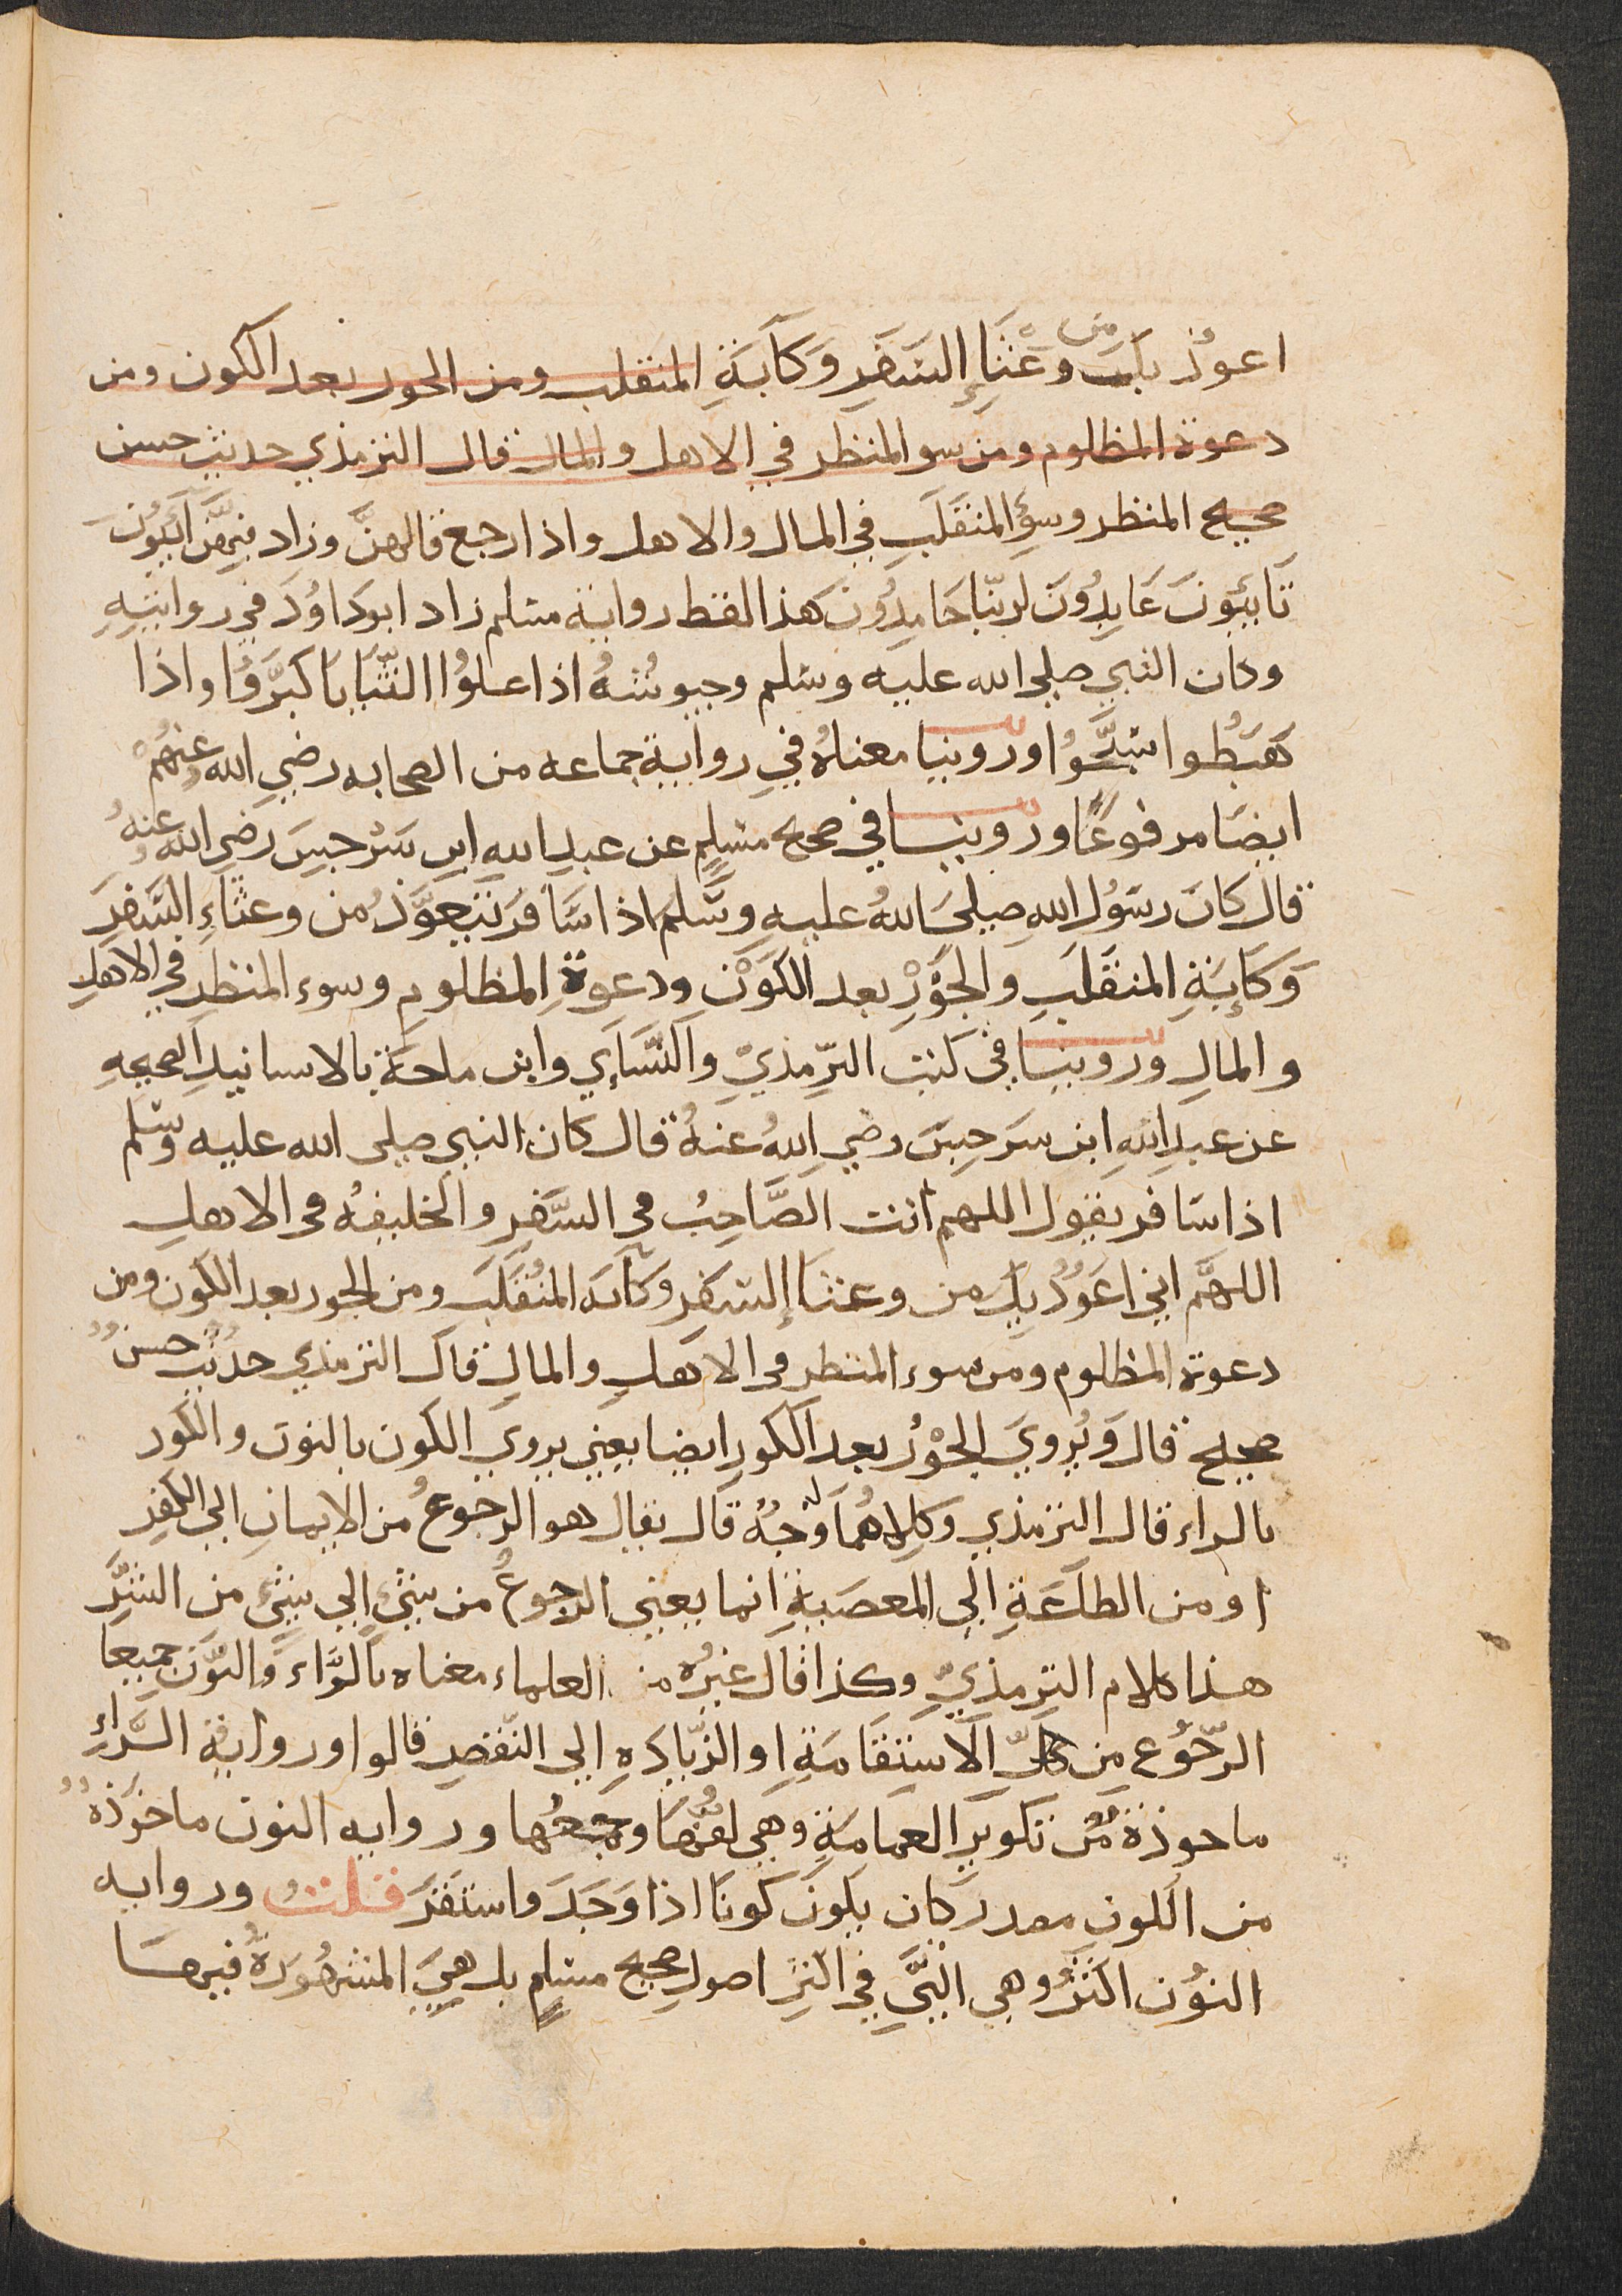 اعوذ بك من وعثاء السفر وكآبة المنقلب ومن الحور بعد الكون ومن
دعوة المظلوم ومن سو المنظر في الاهل والمال قال الترمذي حديث حسن
صحيح المنظر وسوء المنقلب في المال والاهل واذا رجع قالهن وزاد فيهن آئبون
تائبون عابدون لربنا حامدون هذا لفظ رواية مسلم زاد ابو داود في روايته
وكان النبي صلى الله عليه وسلم وجيوشه اذا علوا الثنايا كبروا واذا
هبطوا سبحوا وروينا معناه في رواية جماعه من الصحابه رضي الله عنهم
ايضا مرفوعا وروينا في صحيح مسلم عن عبد الله ابن سرجس رضي الله عنه
قال كان رسول الله صلى الله عليه وسلم اذا سافر يتعوذ من وعثاء السفر
وكابة المنقلب والحور بعد الكون ودعوة المظلوم وسوء المنظر في الاهل
والمال وروينا في كتب الترمذي والنساي وابن ماجة بالاسانيد الصحيحه
عن عبد الله ابن سرجس رضي الله عنه قال كان النبي صلى الله عليه وسلم
اذا سافر يقول اللهم انت الصاحب في السفر والخليفه في الاهل
اللهم اني اعوذ بك من وعثاء السفر وكآبه المنقلب ومن الحور بعد الكون ومن
دعوة المظلوم ومن سوء المنظر في الاهل والمال قال الترمذي حديث حسن
صحيح قال ويروي الحور بعد الكور ايضا يعني يروي الكون بالنون والكور
بالراء قال الترمذي وكلاهما له وجه قال يقال هو الرجوع من الايمان الى الكفر
او من الطاعة الى المعصية انما يعني الرجوع من شيء الي شيء من الشر
هذا كلام الترمذي وكذا قال غيره من العلماء معناه بالراء والنون جميعا
الرجوع من كل الاستقامة او الزياده الى النقص قالوا ورواية الراء
ماخوذة من تكوير العمامة وهي لفها وجمعها وروايه النون ماخوذة
من الكون مصدر كان يكون كونا اذا وجد واستقر قلت وروايه
النون اكثر وهي التي في اكثر اصول صحيح مسلم بل هي المشهورة فيها